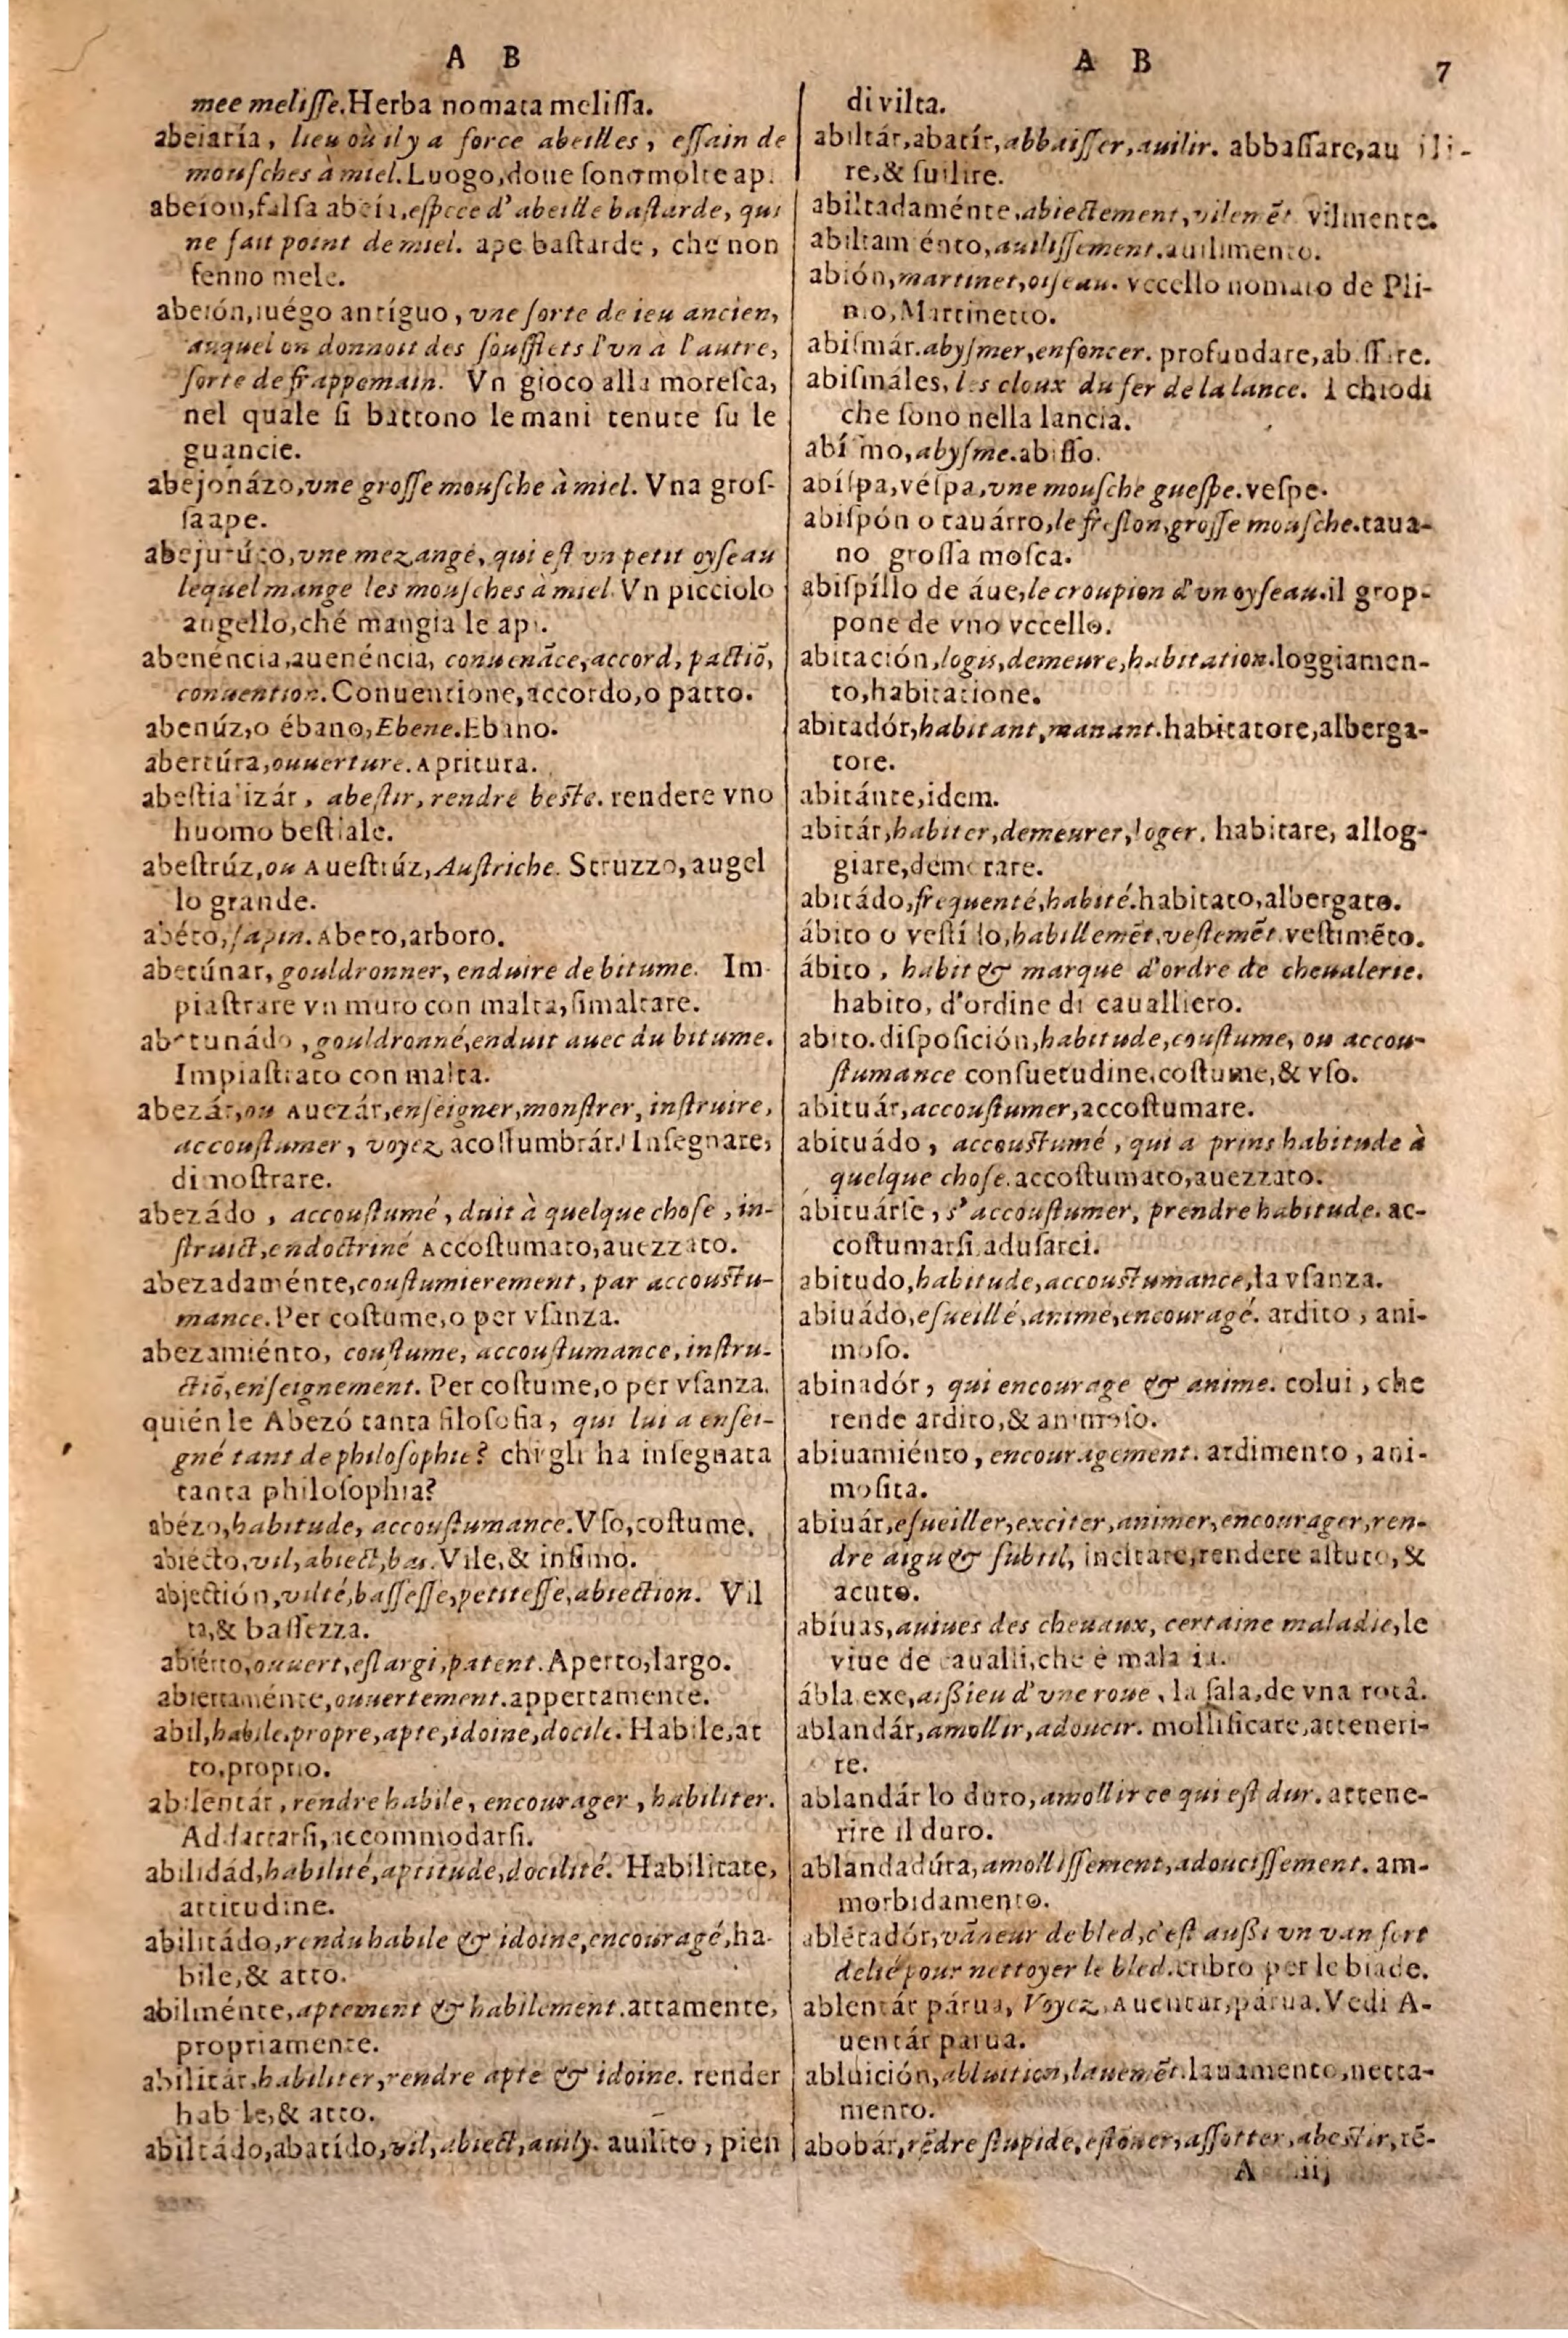 A B
mee melisse. Herba nomata melissa.
abeiaría, lieu où il y a force abeilles, essain de
mousches à miel. Luogo, doue sono molte api.
abeion, falsa abeía, espece d'abeille bastarde, qui
ne fait point de miel. ape bastarde, che non
fenno mele.
abeión, iuégo antíguo, vne sorte de ieu ancien,
auquel on donnoit des soufflets l'vn à l'autre,
sorte de frappemain. Vn gioco alla moresca,
nel quale si battono le mani tenute su le
guancie.
abejonázo, vne grosse mousche à miel. Vna gros-
sa ape.
abejurúco, vne mezange, qui est vn petit oyseau
lequel mange les mousches à miel. Vn picciolo
augello, ché mangia le api.
abenéncia, auenéncia, conuenãce, accord, pactiõ,
conuention. Conuentione, accordo, o patto.
abenúz, o ébano, Ebene. Ebano.
abertúra, ouuerture. Apritura.
abestializár, abestir, rendre beste. rendere vno
huomo bestiale.
abestrúz, ou Auestrúz, Austriche. Struzzo, augel
lo grande.
abéto, sapin. Abeto, arboro.
abetúnar, gouldronner, enduire de bitume. Im-
piastrare vn muro con malta, simaltare.
abetunádo, gouldronné, enduit auec du bitume.
Impiastrato con malta.
abezár, ou Auezár, enseigner, monstrer, instruire,
accoustumer, voyez acostumbrár. Insegnare,
dimostrare.
abezádo, accoustumé, duit à quelque chose, in-
struict, endoctriné Accostumato, auezzato.
abezadaménte, coustumierement, par accoustu-
mance. Per costume, o per vsanza.
abezamiénto, coustume, accoustumance, instru-
ctiõ, enseignement. Per costume, o per vsanza.
quién le Abezó tanta filosofia, qui lui a ensei-
gné tant de philosophie? chi gli ha insegnata
tanta philosophia?
abézo, habitude, accoustumance. Vso, costume.
abiecto, vil, abiect, bas. Vile, & infimo.
abjectión, vilté, bassesse, petitesse, abiection. Vil
ta, & bassezza.
abiérto, ouuert, eslargi, patent. Aperto, largo.
abiertaménte, ouuertement. appertamente.
abil, habile, propre, apte, idoine, docile. Habile, at
to, proprio.
abilentár, rendre habile, encourager, habiliter.
Addattarsi, accommodarsi.
abilidád, habilité, aptitude, docilité. Habilitate,
attitudine.
abilitádo, rendu habile & idoine, encouragé, ha-
bile, & atto.
abilménte, aptement & habilement. attamente,
propriamente.
abilitár, habiliter, rendre apte & idoine. render
habile, & atto.
abiltádo, abatído, vil, abiect, auily. auilito, pien
A B 7
di vilta.
abiltár, abatír, abbaisser, auilir. abbassare, auili-
re, & suilire.
abiltadaménte, abiectement, vilemẽt vilmente.
abiltamiénto, auilissement. auilimento.
abión, martinet, oiseau. vccello nomato de Pli-
nio, Martinetto.
abismár. abysmer, enfoncer. profundare, abissare.
abismáles, les cloux du fer de la lance. I chiodi
che sono nella lancia.
abísmo, abysme. abisso.
abíspa, véspa, vne mousche guespe. vespe.
abispón o tauárro, le freslon, grosse mousche. taua-
no grossa mosca.
abispíllo de áue, le croupion d'vn oyseau. il grop-
pone de vno vccello.
abitación, logis, demeure, habitation. loggiamen-
to, habitatione.
abitadór, habitant, manant. habitatore, alberga-
tore.
abitánte, idem.
abitár, habiter, demeurer, loger. habitare, allog-
giare, demorare.
abitádo, frequenté, habité. habitato, albergato.
ábito o vestído, habillemẽt, vestemẽt. vestimẽto.
ábito, habit & marque d'ordre de cheualerie.
habito, d'ordine di caualliero.
abito. disposición, habitude, coustume, ou accou-
stumance consuetudine, costume, & vso.
abituár, accoustumer, accostumare.
abituádo, accoustumé, qui a prins habitude à
quelque chose. accostumato, auezzato.
abituárse, s'accoustumer, prendre habitude. ac-
costumarsi adusarci.
abitudo, habitude, accoustumance, la vsanza.
abiuádo, esueillé, animé, encouragé. ardito, ani-
moso.
abinadór, qui encourage & anime. colui, che
rende ardito, & animoso.
abiuamiénto, encouragement. ardimento, ani-
mosita.
abiuár, esueiller, exciter, animer, encourager, ren-
dre aigu & subtil, incitare, rendere astuto, &
acuto.
abíuas, auiues des cheuaux, certaine maladie, le
viue de caualli, che è mala
ábla exe, aißieu d'vne roue, la sala, de vna rotâ.
ablandár, amollir, adoucir. mollificare, atteneri-
re.
ablandár lo duro, amollir ce qui est dur. attene-
rire il duro.
ablandadúra, amollissement, adoucissement. am-
morbidamento.
ablétadór, vãneur de bled, c'est außi vn van fort
delié pour nettoyer le bled. cribro per le biade.
ablentár párua, Voyez, Auentar, párua. Vedi A-
uentár parua.
abluición, abluition, lauemẽt. lauamento, netta-
mento.
abobár, rẽdre stupide, estõner, assotter, abestir, rẽ-
A iij